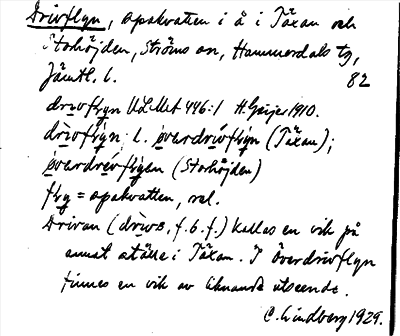 Drivflyn, spakvatten i å i Täxan och
Storhöjden, Ströms sn, Hammerdals tg,
Jämtl. l. 82
drivflyn ULMA 446:1 H. Geijer 1910.
drìvflỳn; l. øvərdrívflỳn (Täxan);
øvərdrévflỳən (Storhöjden)
fly = spakvatten, sel.
Drivan (f. b. f.) kallas en vik på
annat ställe i Täxan. I Överdrivflyn
finnes en vik av liknande utseende.
C. Lindberg 1929.